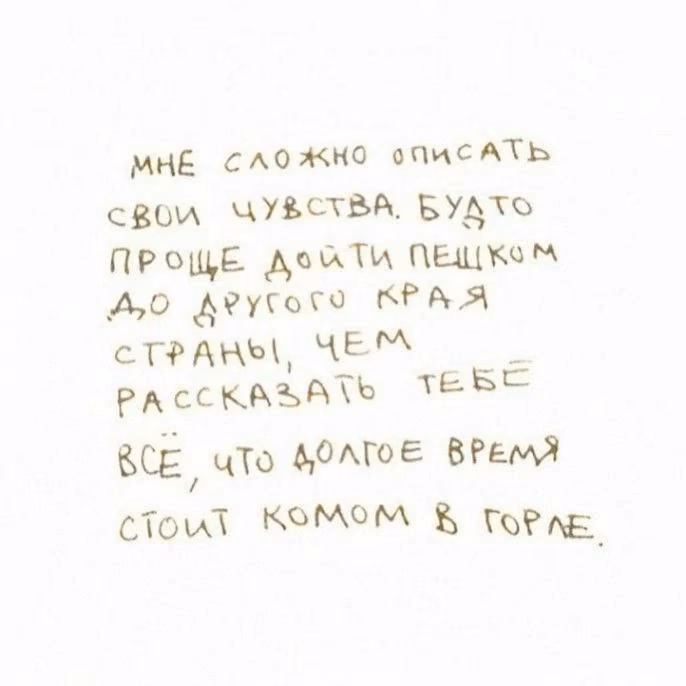 МНЕ СЛОЖНО ОПИСАТЬ
СВОИ ЧУВСТВА. БУДТО
ПРОЩЕ ДОЙТИ ПЕШКОМ
ДО ДРУГОГО КРАЯ
СТРАНЫ, ЧЕМ
РАССКАЗАТЬ ТЕБЕ
ВСЁ, ЧТО ДОЛГОЕ ВРЕМЯ
СТОИТ КОМОМ В ГОРЛЕ.